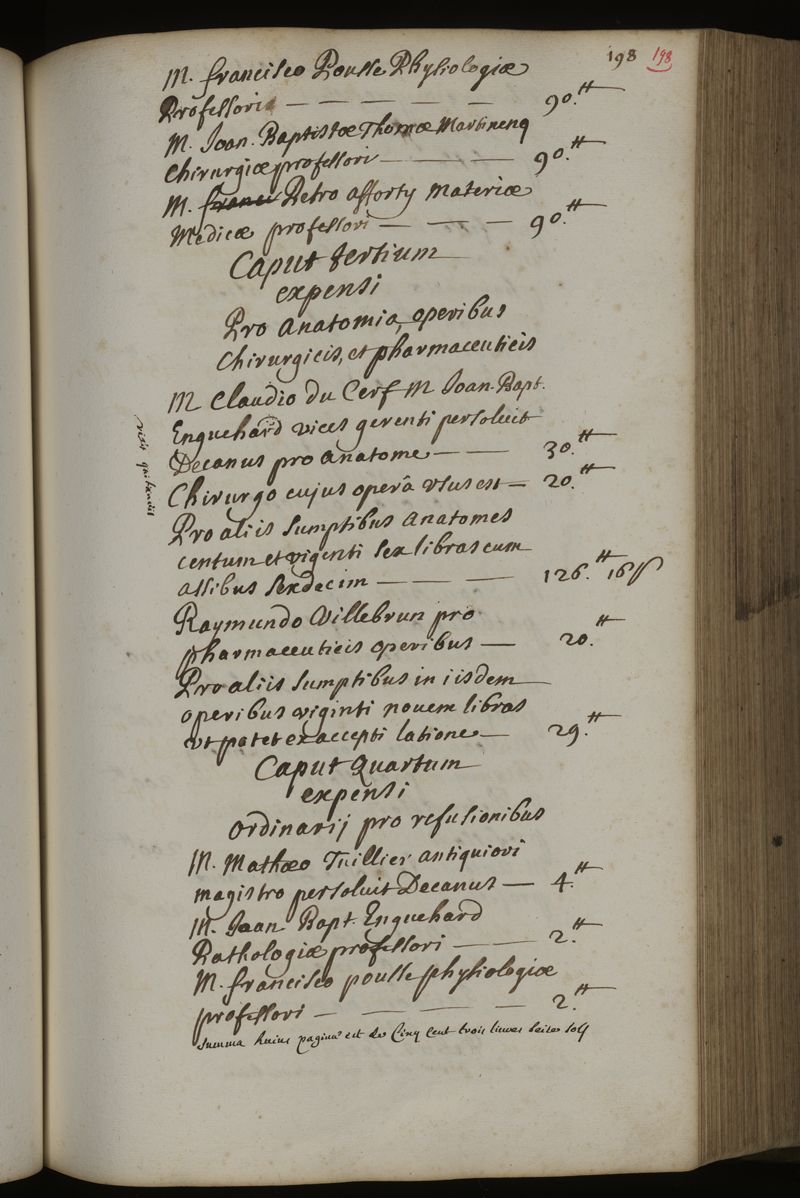 198 198
M. francisco Pousse Physiologiæ
Professori — — — — — 90.tt
M. Joan. Baptistæ Thomæ Martinenq
chirurgiæ professori — — — 90.tt
M. franci Petro afforty materiæ
Medicæ professori — — — 90.tt
Caput tertium
expensi
Pro anatomia, operibus
chirurgicis, et pharmaceuticis
M Claudio du Cerf M Joan-Bapt.
Enguehard vices gerenti persoluit
Decanus pro anatome — — 30.tt
Chirurgo cujus operâ vsus est — 20.tt
Pro aliis sumptibus anatomes
centum et viginti sex libras cum
assibus sexdecim — — — 126.tt 16ſ
Raymundo Villebrun pro
pharmaceuticis operibus — 20.tt
Pro aliis sumptibus in iisdem
operibus viginti novem libras
vt patet ex accepti latione — 29.tt
Caput Quartum
expensi
ordinarij pro refusionibus
M. Mathæo Tuillier antiquiori
magistro persoluit Decanus — 4.tt
M. Joan Bapt. Enguehard
Pathologiæ professori — — 2.tt
M. francisco pousse physiologiæ
professori — — — — 2.tt
Summa huius paginæ est de Cinq Cent trois liures seize sols